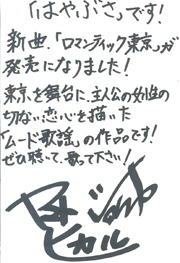 「はやぶさ」です!
新曲、「ロマンティック東京」が
発売になりました!
東京を舞台に、主人公の女性の
切ない恋心を描いた
「ムード歌謡」の作品です!
ぜひ聴いて、歌って下さい!
ヒカル